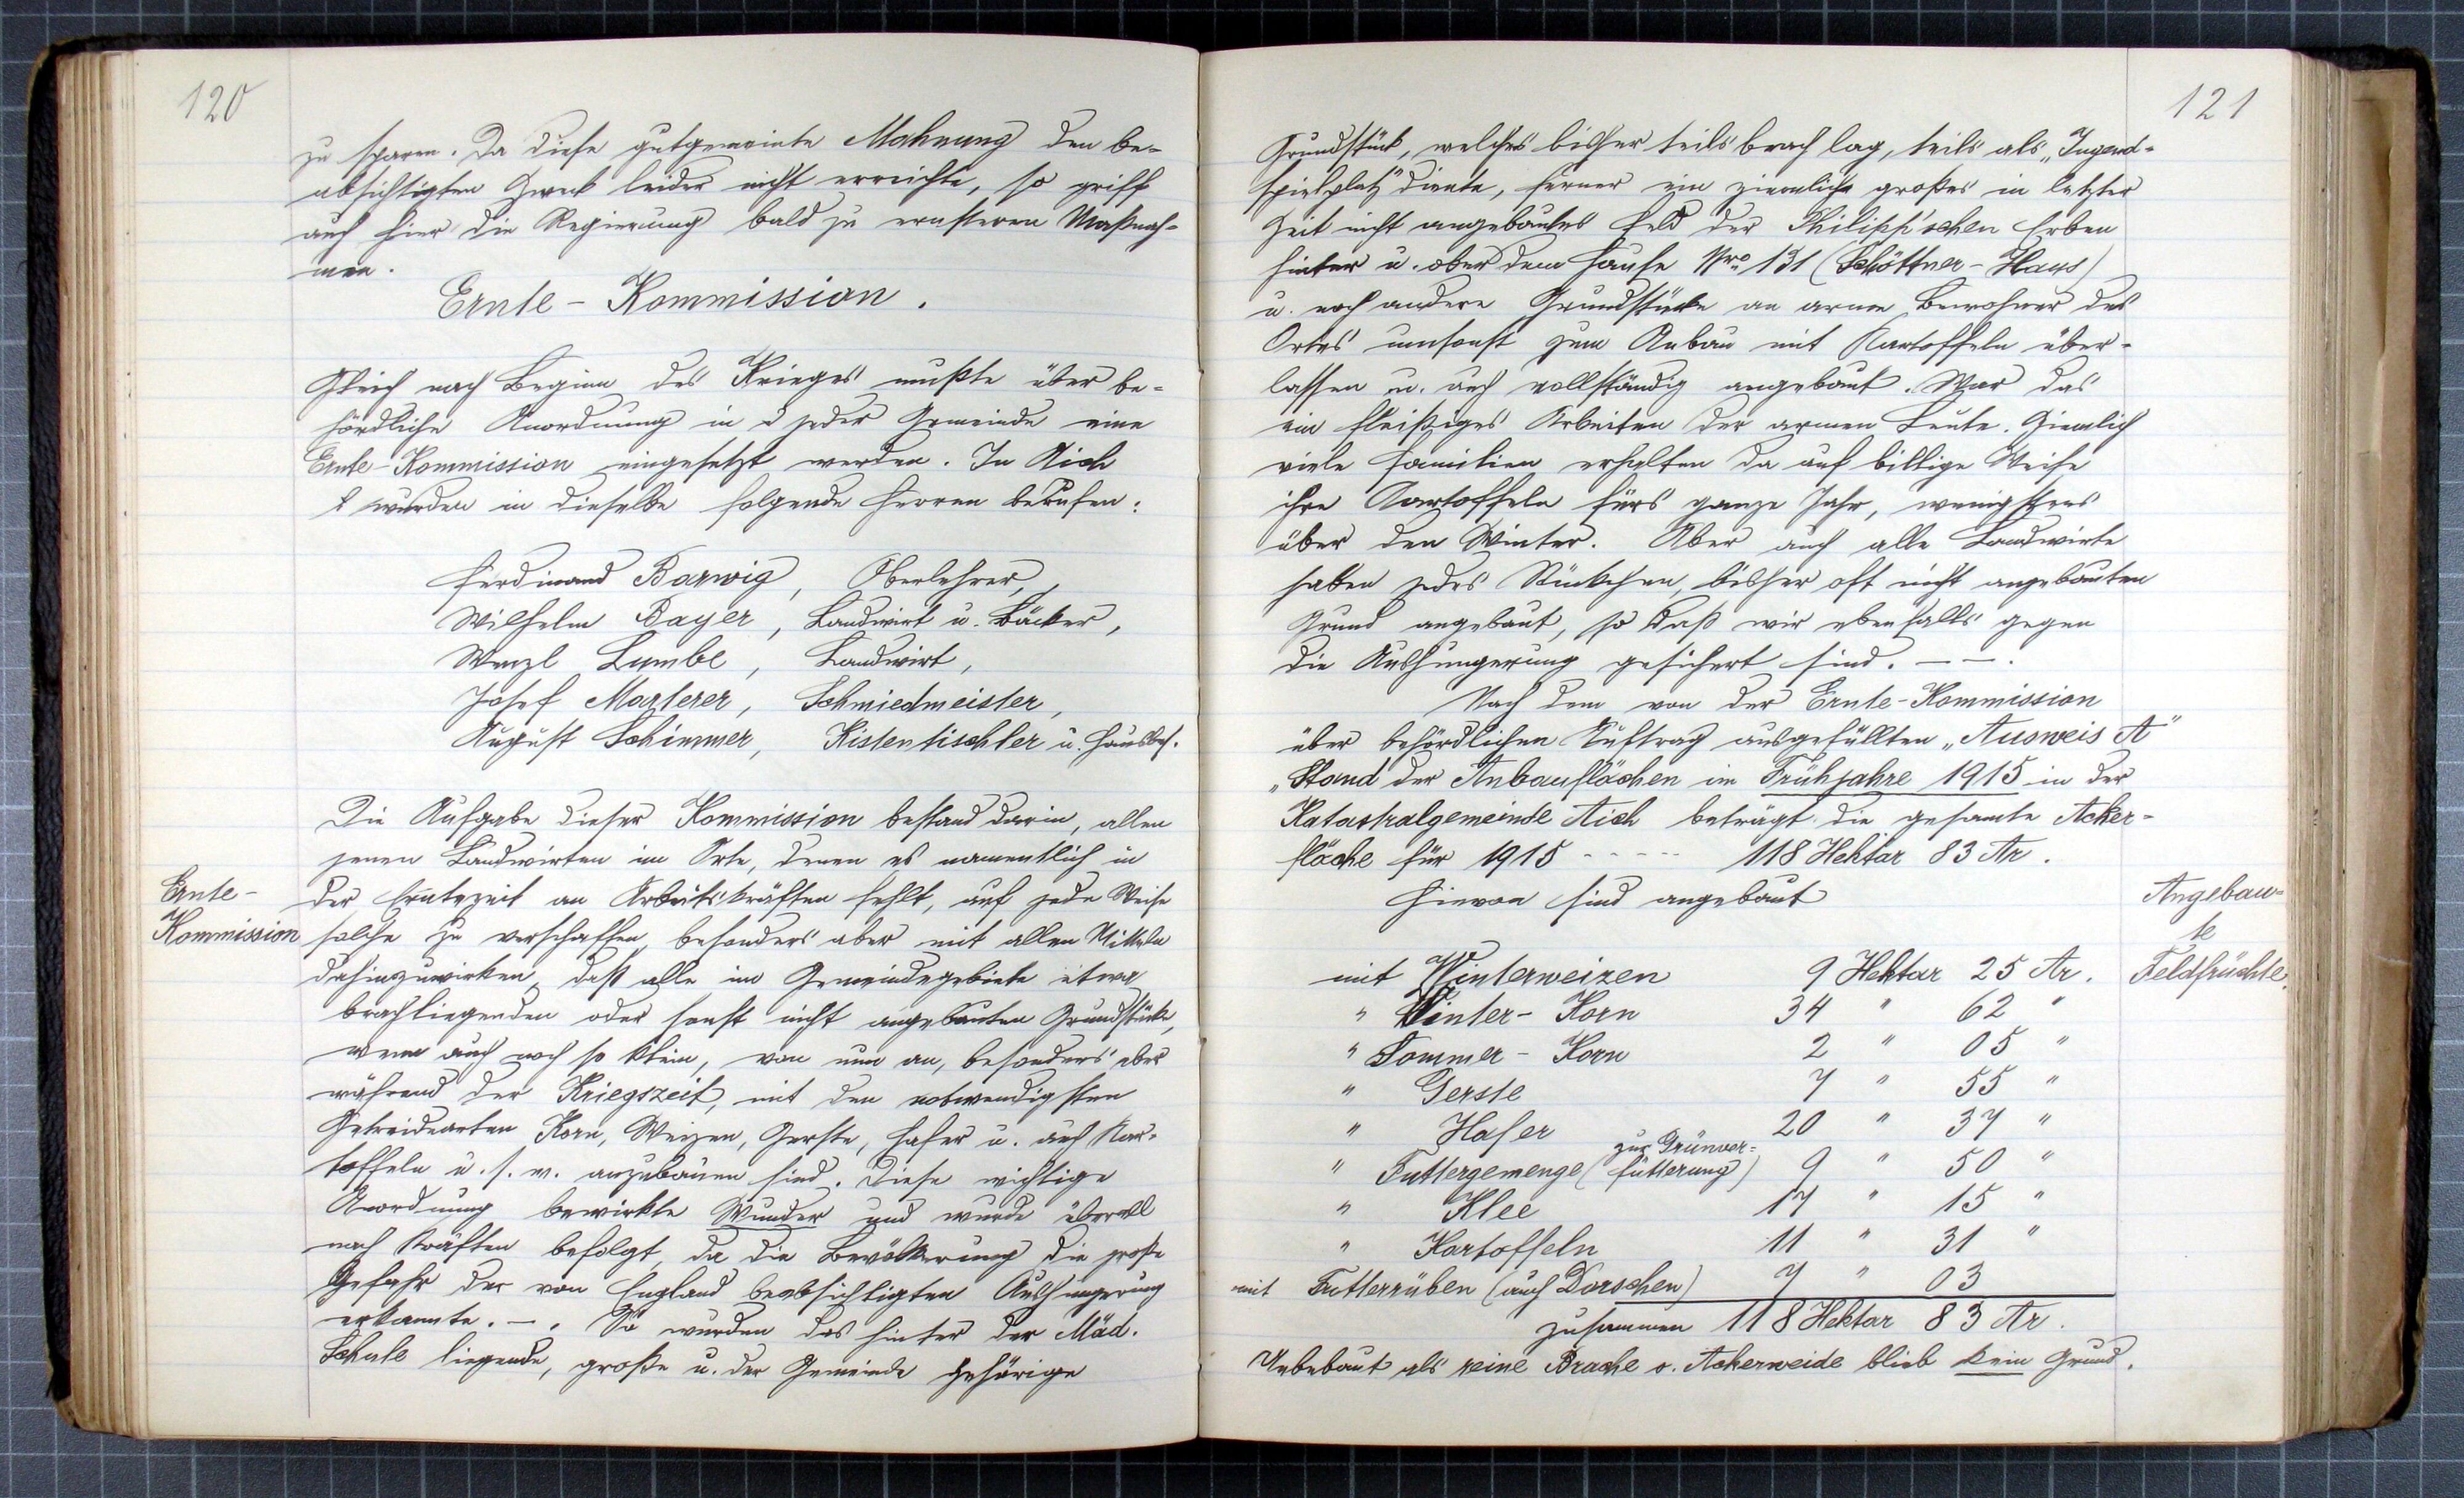 120
zu sparen. Da diese gutgemeinte Mahnung den be-
absichtigten Zweck leider nicht erreichte, so griff
auch hier die Regierung bald zu ernsteren Maßnah-
men.
Ernte-Kommission.
Gleich nach Beginn des Krieges mußte über be-
hördliche Anordnung in jeder Gemeinde eine
Ernte-Kommission eingesetzt werden. In Aich
wurden in dieselbe folgende Herren berufen:
Ferdinand Barwig, Oberlehrer,
Wilhelm Bayer, Landwirt u. Bäcker,
Wenzl Lumbe, Landwirt,
Josef Marterer, Schmiedmeister,
August Schimmer, Kistentischler u. Hausbes.
Die Aufgabe dieser Kommission bestand darin, allen
jenen Landwirten im Orte, denen es namentlich in
Ernte-
Kommission
der Erntezeit an Arbeitskräften fehlt, auf jede Weise
solche zu verschaffen, besonders aber mit allen Mitteln
dahinzuwirken, daß alle im Gemeindegebiete etwa
brachliegenden oder sonst nicht angebauten Grundstücke,
wenn auch noch so klein, von nun an, besonders aber
während der Kriegszeit, mit den notwendigsten
Getreidearten Korn, Weizen, Gerste, Hafer u. auch Kar-
toffeln u. s. w. anzubauen sind. Diese wichtige
Anordnung bewirkte Wunder und wurde überall
nach Kräften befolgt, da die Bevölkerung die große
Gefahr der von England beabsichtigten Aushungerung
erkannte. —. So wurden das hinter der Mäd.
Schule liegende, große u. der Gemeinde gehörige
121
Grundstück, welches bisher teils brach lag, teils als „Jugend-
spielplatz" diente, ferner ein ziemliches großes in letzter
Zeit nicht angebautes Feld der Philipp'schen Erben
hinter u. ober dem Hause Nro 131 (Schöttner-Haus)
u. noch andere Grundstücke an arme Bewohner des
Ortes umsonst zum Anbau mit Kartoffeln über-
lassen u. auch vollständig angebaut. War das
ein fleißiges Arbeiten der armen Leute. Ziemlich
viele Familien erhalten da auf billige Weise
ihre Kartoffeln fürs ganze Jahr, wenigstens
über den Winter. Aber auch alle Landwirte
haben jedes Stückchen, bisher oft nicht angebauten
Grund angebaut, so daß wir ebenfalls gegen
die Aushungerung gesichert sind. — —.
Nach dem von der Ernte-Kommission
über behördlichen Auftrag ausgefüllten „Ausweis A"
„Stand der Anbauflächen im Frühjahre 1915 in der
Katastralgemeinde Aich beträgt die gesamte Acker-
fläche für 1915 - - - - - 118 Hektar 83 Ar.
Hievon sind angebaut
Angebau-
te
Feldfrüchte.
mit Winterweizen 9 Hektar 25 Ar.
" Winter-Korn 34 " 62 "
" Sommer-Korn 2 " 05 "
" Gerste 7 " 55 "
" Hafer 20 " 37 "
" Futtergemenge (zur Grünver-
fütterung) 9 " 50 "
" Klee 17 " 15 "
" Kartoffeln 11 " 31 "
mit Futterrüben (auch Dorschen) 7 " 03
zusammen 118 Hektar 83 Ar.
Unbebaut als reine Brache o. Ackerweide blieb kein Grund.